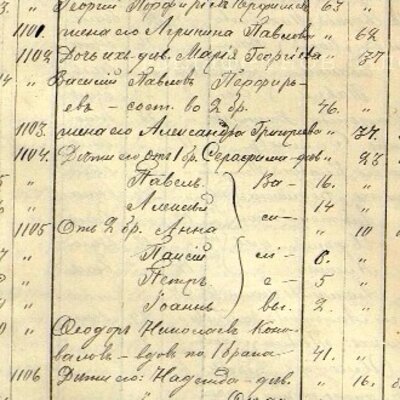 " Георгій Порфирьевъ 63. "
1101. жена его Агрипина Павлова " 62
1102. Дочь ихъ-дѣв. Марія Георгіева " 37
" Василій Павловъ Перфирь-
евъ – сост. во 2 бр. 46. "
1103. жена его Александра Григорьева " 37.
1104. Дѣти его отъ 1 бр. Серафима-дѣв. " 23
" Павелъ. Ва- 16. "
" Алексѣй си- 14 "
1105 Отъ 2 бр. Анна " 10
" Паисій лі- 6. "
" Петръ е- 5 "
" Іоаннъ вы. 2. "
" Ѳеодоръ Николаевъ Коно-
валовъ – вдовъ по 1 бракѣ 41. "
1106 Дѣти его: Надежда-дѣв. " 16.